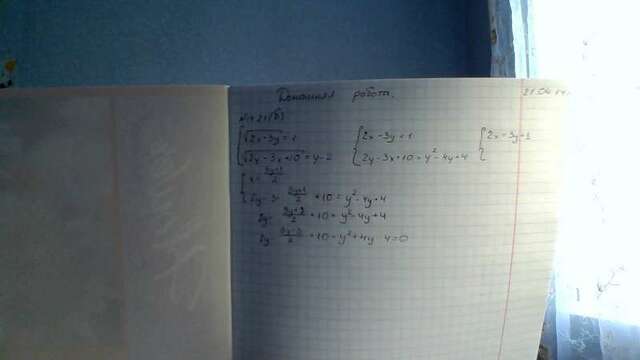 Домашняя работа. 21.04
{√2x-3y=1 {2x-3y=1 {2x-3y=1
{√2y-3x+10=y-2 {2y-3x+10=y²-4y+4
{x=3y+1/2
{2y-3·3y+1/2+10=y²-4y+4
2y-9y+3/2+10=y²-4y+4
2y-9y-3/2+10-y²+4y-4=0